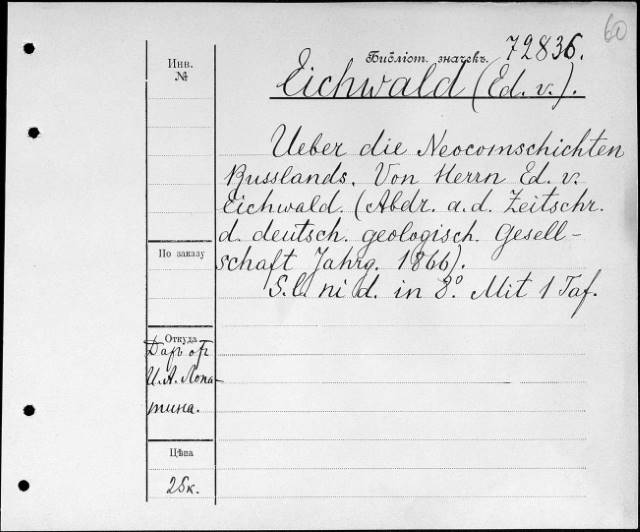 60
Библіот. значекъ. 72836.
Инв.
№
Eichwald (Ed. v.).
Ueber die Neocomschichten
Russlands. Von Herrn Ed. v.
Eichwald. (Abdr. a. d. Zeitschr.
d. deutsch. geologisch. Gesell-
schaft Jahrg. 1866).
S. l. ni d. in 8º. Mit 1 Taf.
По заказу
Откуда
Даръ отъ
И. А. Лопа-
тина.
Цѣна
25к.